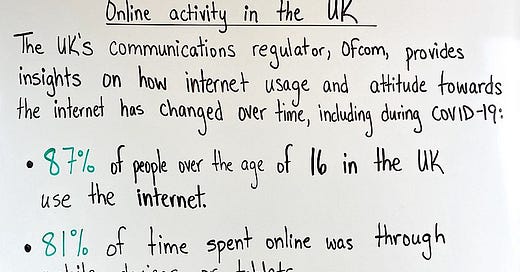 Online activity in the UK
The UK's communications regulator, Ofcom, provides
insights on how internet usage and attitude towards
the internet has changed over time, including during COVID-19:
• 87% of people over the age of 16 in the UK
use the internet.
• 81% of time spent online was through